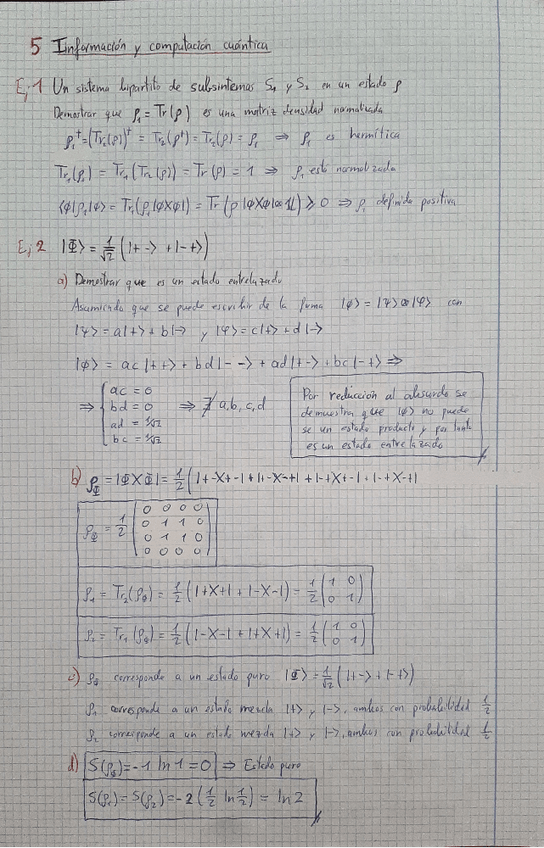 5 Información y computación cuántica
Ej 1 Un sistema bipartito de subsistemas S₁ y S₂ en un estado ρ
Demostrar que ρ₁ = Tr(ρ) es una matriz densidad normalizada
ρ₁† = (Tr₂(ρ))† = Tr₂(ρ†) = Tr₂(ρ) = ρ₁ ⇒ ρ₁ es hermítica
Tr₁(ρ₁) = Tr₁(Tr₂(ρ)) = Tr(ρ) = 1 ⇒ ρ₁ está normalizada
⟨φ|ρ₁|φ⟩ = Tr₁(ρ₁|φ⟩⟨φ|) = Tr(ρ |φ⟩⟨φ|⊗𝟙) ⩾ 0 ⇒ ρ₁ definida positiva
Ej 2 |Φ⟩ = 1/√2 (|+-⟩ + |-+⟩)
a) Demostrar que es un estado entrelazado
Asumiendo que se puede escribir de la forma |φ⟩ = |ψ⟩⊗|φ⟩ con
|ψ⟩ = a|+⟩ + b|-⟩ y |φ⟩ = c|+⟩ + d|-⟩
|φ⟩ = ac|++⟩ + bd|--⟩ + ad|+-⟩ + bc|-+⟩ ⇒
⇒ { ac = 0
bd = 0
ad = 1/√2
bc = 1/√2
⇒ ∄ a,b,c,d
Por reducción al absurdo se
demuestra que |φ⟩ no puede
se un estado producto y por tanto
es un estado entrelazado
b) ρ_Φ = |Φ⟩⟨Φ| = 1/2 (|+-⟩⟨+-| + |+-⟩⟨-+| + |-+⟩⟨+-| + |-+⟩⟨-+|
ρ_Φ = 1/2 (
0 0 0 0
0 1 1 0
0 1 1 0
0 0 0 0
)
ρ₁ = Tr₂(ρ_Φ) = 1/2 (|+⟩⟨+| + |-⟩⟨-|) = 1/2 (1 0
0 1)
ρ₂ = Tr₁(ρ_Φ) = 1/2 (|-⟩⟨-| + |+⟩⟨+|) = 1/2 (1 0
0 1)
c) ρ_Φ corresponde a un estado puro |Φ⟩ = 1/√2 (|+-⟩ + |-+⟩)
ρ₁ corresponde a un estado mezcla |+⟩ y |-⟩, ambos con probabilidad 1/2
ρ₂ corresponde a un estado mezcla |+⟩ y |-⟩, ambos con probabilidad 1/2
d) S(ρ_Φ) = -1 ln 1 = 0 ⇒ Estado puro
S(ρ₁) = S(ρ₂) = -2 (1/2 ln 1/2) = ln 2